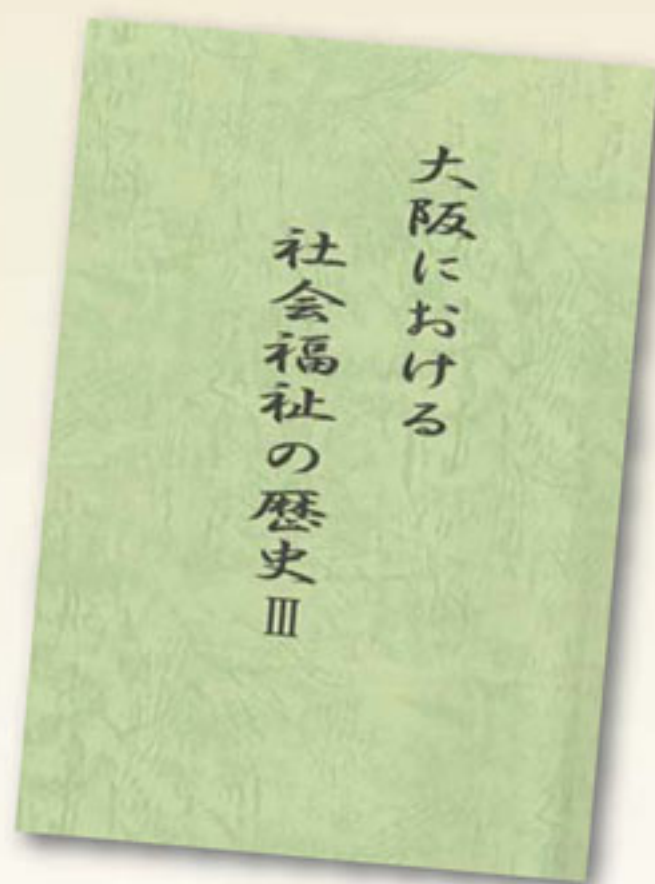 大阪における
社会福祉の歴史Ⅲ